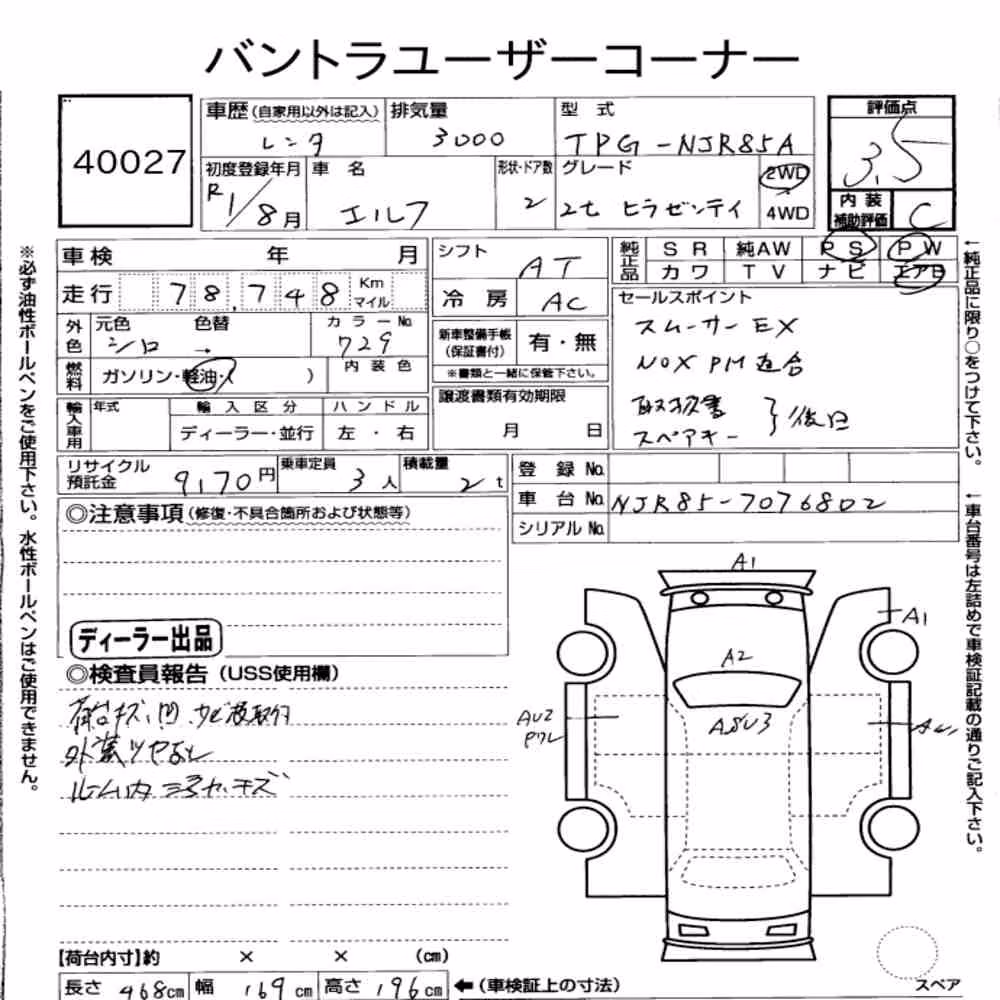 バントラユーザーコーナー
40027
車歴(自家用以外は記入) 排気量 型式 評価点
レンタ 3000 TPG-NJR85A 3.5
初度登録年月 車名 形状・ドア数 グレード 2WD 内装補助評価
R1/8月 エルフ 2 2t ヒラゼンテイ 4WD C
車検 年 月 シフト AT 純正品 SR 純AW PS PW
カワ TV ナビ エアB
走行 78,748 Km マイル 冷房 AC セールスポイント
外色 元色 色替 カラーNo. 新車整備手帳(保証書付) 有・無 スムーサーEX
シロ → 729 ※書類と一緒に保管下さい。 NOX PM適合
燃料 ガソリン・軽油・( ) 内装色 譲渡書類有効期限 取扱書
スペアキー } 後日
輸入車用 年式 輸入区分 ハンドル 月 日
ディーラー・並行 左・右
リサイクル預託金 9,170円 乗車定員 3人 積載量 2t 登録No.
車台No. NJR85-7076802
シリアルNo.
◎注意事項(修復・不具合箇所および状態等)
ディーラー出品
◎検査員報告(USS使用欄)
荷台キズ、凹 サビ
外装ツヤなし
ルーム内 キズ
A1
A1
A2
AU2
【荷台内寸】約 × × (cm)
長さ 468cm 幅 169cm 高さ 196cm ←(車検証上の寸法)
スペア
※必ず油性ボールペンをご使用下さい。水性ボールペンはご使用できません。
←純正品に限り○をつけて下さい。
←車台番号は左詰めで車検証記載の通りご記入下さい。